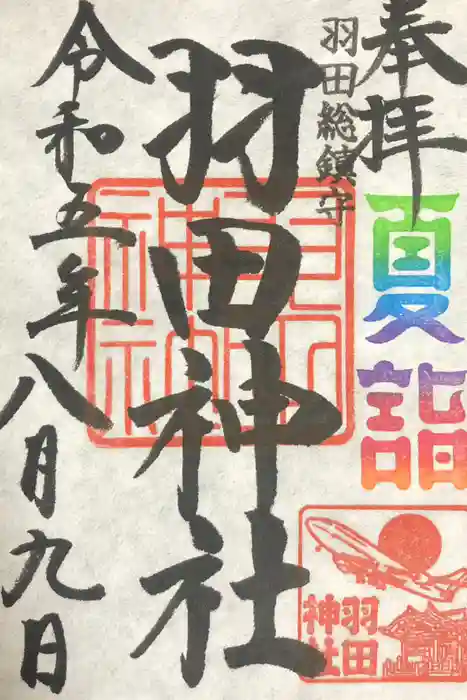 奉拝
夏詣
羽田総鎮守
羽田神社
令和五年八月九日
羽田
神社